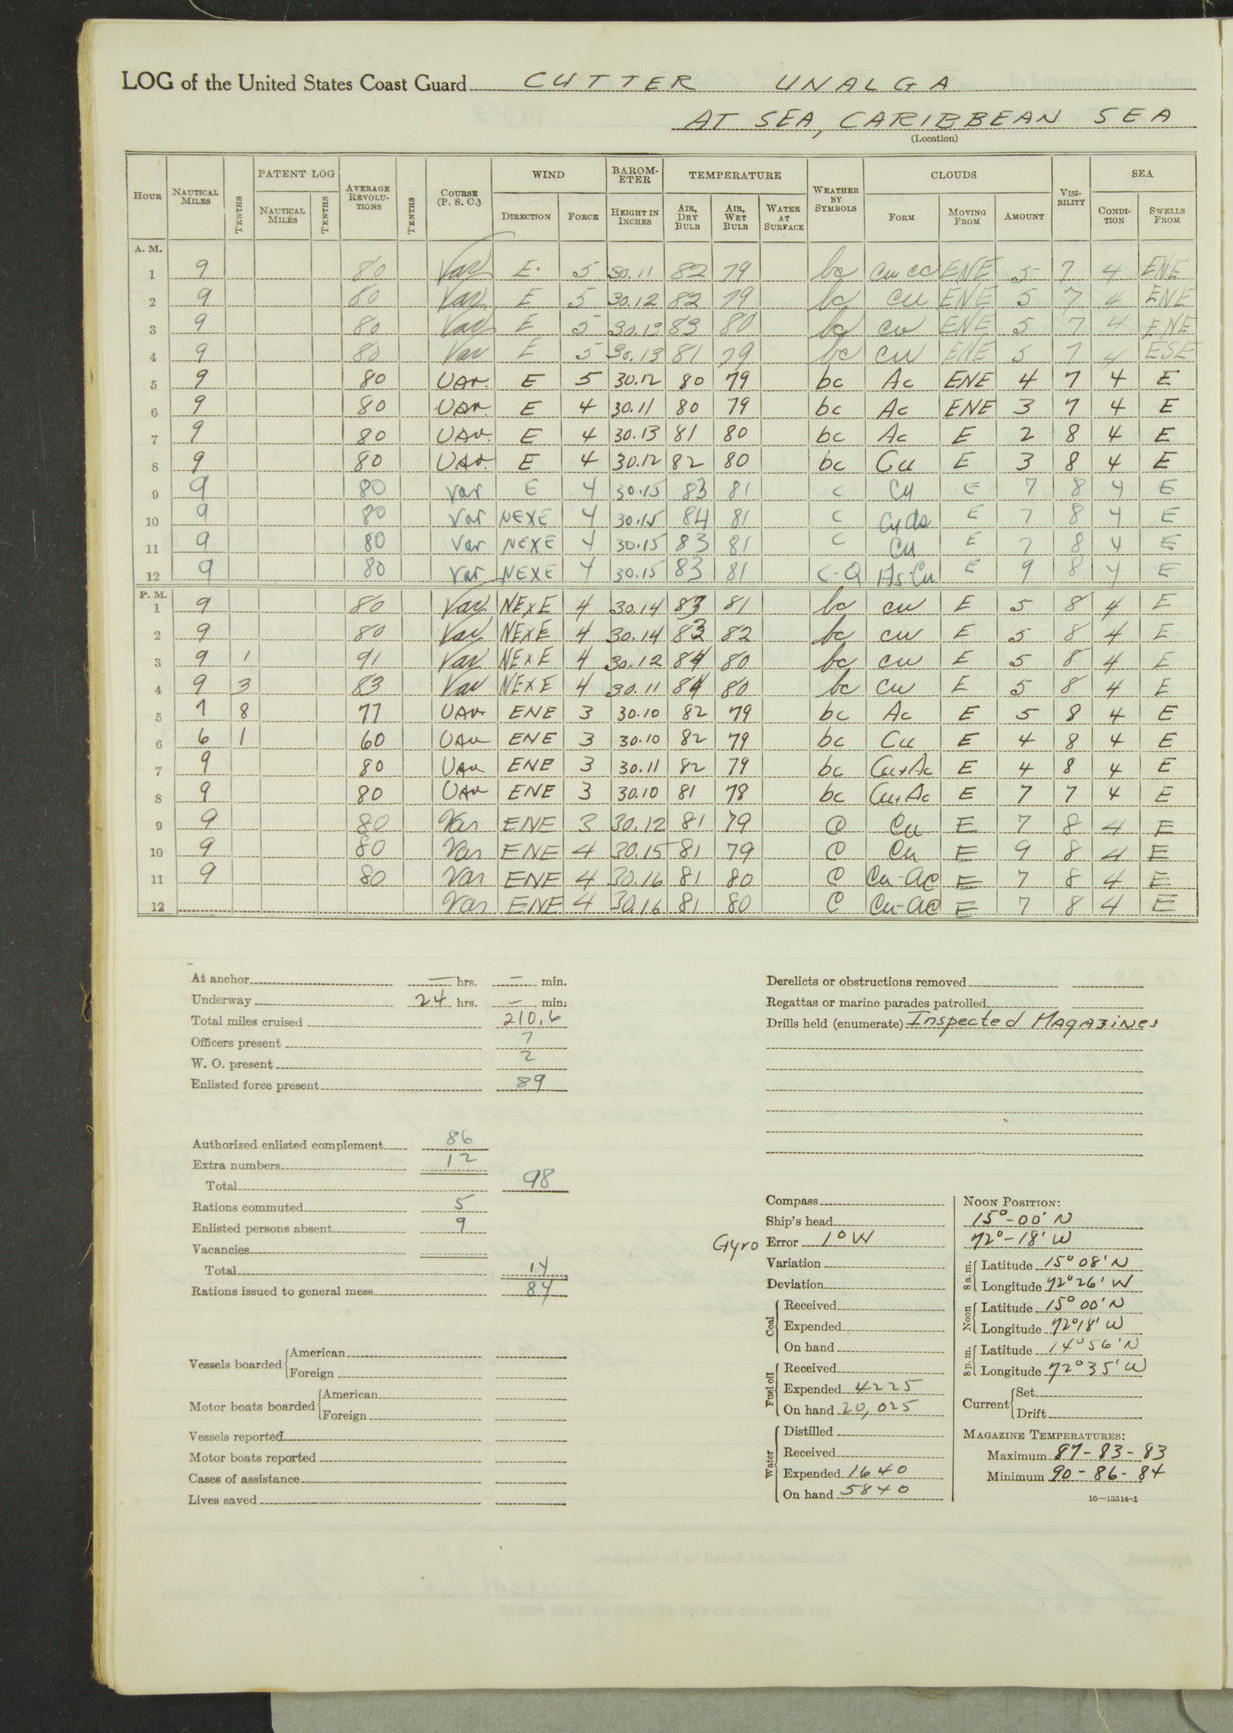 LOG of the United States Coast Guard CUTTER UNALGA
AT SEA, CARIBBEAN SEA
(Location)
HOUR NAUTICAL MILES TENTHS PATENT LOG NAUTICAL MILES TENTHS AVERAGE REVOLUTIONS TENTHS COURSE (P. S. C.) WIND DIRECTION FORCE BAROMETER HEIGHT IN INCHES TEMPERATURE AIR, DRY BULB AIR, WET BULB WATER AT SURFACE WEATHER BY SYMBOLS CLOUDS FORM MOVING FROM AMOUNT VISIBILITY SEA CONDITION SWELLS FROM
A. M.
1 9 80 Var E 5 30.11 82 79 bc Cu ENE 5 7 4 ENE
2 9 80 Var E 5 30.12 82 79 bc cu ENE 5 7 4 ENE
3 9 80 Var E 5 30.12 83 80 bc cu ENE 5 7 4 ENE
4 9 80 Var E 5 30.13 81 79 bc cu ENE 5 7 4 ESE
5 9 80 VAr. E 5 30.12 80 79 bc Ac ENE 4 7 4 E
6 9 80 VAr E 4 30.11 80 79 bc Ac ENE 3 7 4 E
7 9 80 VAr. E 4 30.13 81 80 bc Ac E 2 8 4 E
8 9 80 VAr. E 4 30.12 82 80 bc Cu E 3 8 4 E
9 9 80 Var E 4 30.15 83 81 c Cu E 7 8 4 E
10 9 80 Var NEXE 4 30.15 84 81 c E 7 8 4 E
11 9 80 Var NEXE 4 30.15 83 81 c Cu E 7 8 4 E
12 9 80 Var NEXE 4 30.15 83 81 C-Q As-Cu E 9 8 4 E
P. M.
1 9 80 Var NExE 4 30.14 83 81 bc cu E 5 8 4 E
2 9 80 Var NExE 4 30.14 83 82 bc cu E 5 8 4 E
3 9 1 91 Var NExE 4 30.12 84 80 bc cu E 5 8 4 E
4 9 3 83 Var NEXE 4 30.11 84 80 bc cu E 5 8 4 E
5 7 8 77 VAr ENE 3 30.10 82 79 bc Ac E 5 8 4 E
6 6 1 60 VAr ENE 3 30.10 82 79 bc Cu E 4 8 4 E
7 9 80 VAr ENE 3 30.11 82 79 bc Cu+Ac E 4 8 4 E
8 9 80 VAr ENE 3 30.10 81 78 bc Cu+Ac E 7 7 4 E
9 9 80 Var ENE 3 30.12 81 79 C Cu E 7 8 4 E
10 9 80 Var ENE 4 30.15 81 79 C Cu E 9 8 4 E
11 9 80 Var ENE 4 30.16 81 80 C Cu-Ac E 7 8 4 E
12 Var ENE 4 30.16 81 80 C Cu-Ac E 7 8 4 E
At anchor — hrs. — min.
Underway 24 hrs. — min.
Total miles cruised 210.6
Officers present 7
W. O. present 2
Enlisted force present 89
Authorized enlisted complement 86
Extra numbers 12
Total 98
Rations commuted 5
Enlisted persons absent 9
Vacancies
Total 14
Rations issued to general mess 84
Vessels boarded American
Foreign
Motor boats boarded American
Foreign
Vessels reported
Motor boats reported
Cases of assistance
Lives saved
Derelicts or obstructions removed
Regattas or marine parades patrolled
Drills held (enumerate) Inspected Magazines
Compass
Ship's head
Gyro Error 1° W
Variation
Deviation
Coal Received
Expended
On hand
Fuel oil Received
Expended 4225
On hand 20,025
Water Distilled
Received
Expended 1640
On hand 5840
NOON POSITION:
15°-00' N
72°-18' W
8 a. m. Latitude 15° 08' N
Longitude 72° 26' W
Noon Latitude 15° 00' N
Longitude 72° 18' W
8 p. m. Latitude 14° 56' N
Longitude 72° 35' W
Current Set
Drift
MAGAZINE TEMPERATURES:
Maximum 87-83-83
Minimum 90-86-84
16—13314-1